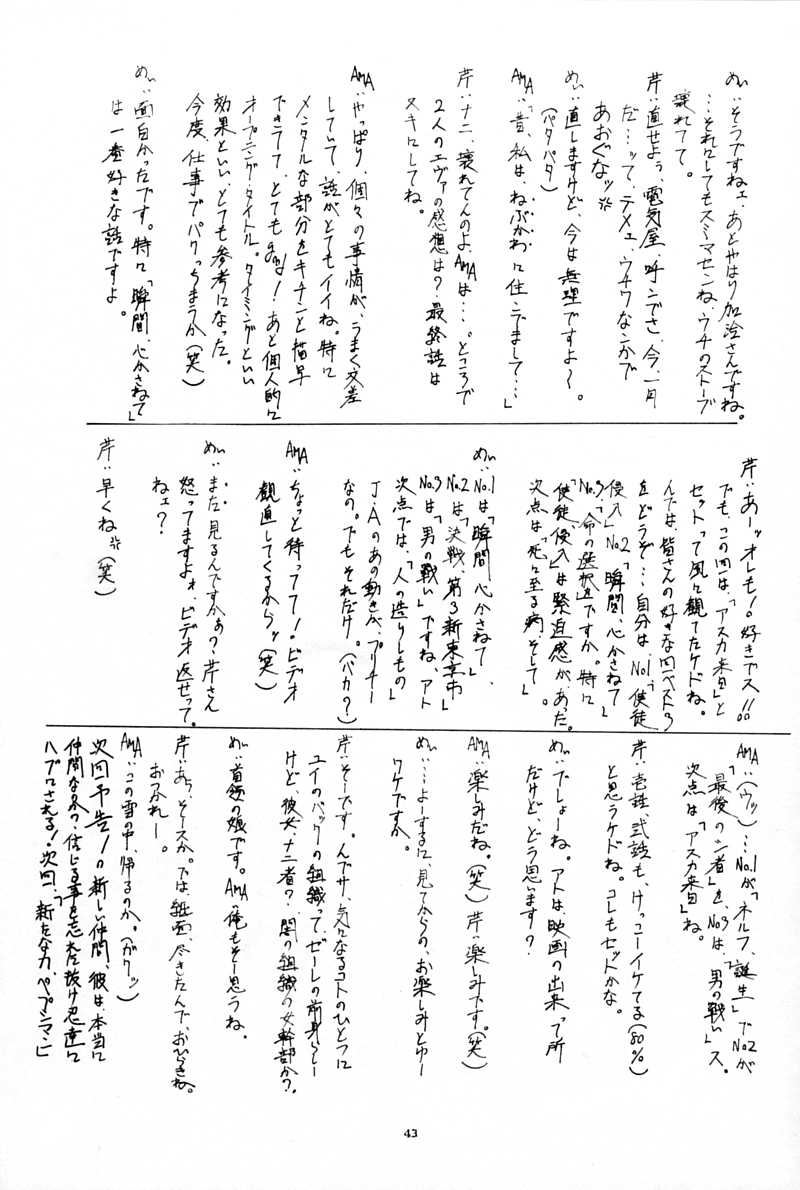 めぃ：そうですねェ、あとやはり加治さんですね。
…それにしてもスミマセンね、ウチのストーブ
壊れてて。
芹：直せよぅ、電気屋、呼ンでさ、今、一月
だ…って、テメェ、ウチワなンかで
あおぐなッ
めぃ：直しますけど、今は無理ですよ〜。
（パタパタ）
AMA：「昔、私は、ねぶかわに住ンでまして…」
芹：ナニ、壊れてんのよ、AMAは…。ところで
2人のエヴァの感想は？最終話は
ヌキにしてね。
AMA：やっぱり、個々の事情が、うまく交差
していて、話がとてもイイね。特に
メンタルな部分をキチンと描写
できてて、とてもgood！あと個人的に
オープニング・タイトル。タイミングといい
効果といい、とても参考になった。
今度、仕事でパクっちまうか（笑）
めぃ：面白かったです。特に「瞬間、心かさねて」
は一番好きな話ですよ。
芹：あーッオレも！好きでス!!
でも、この回は、「アスカ来日」と
セットって風に観てたケドね。
んでは、皆さんの好きな回ベスト3
をどうぞ…自分は、No.1「使徒
侵入」No.2「瞬間、心かさねて」
No.3「命の選択を」ですか。特に
「使徒、侵入」は緊迫感が、あった。
次点は「死に至る病、そして」
めぃ：No.1は「瞬間、心かさねて」、
No.2は「決戦、第3新東京市」
No.3は「男の戦い」ですね、アト
次点では、「人の造りしもの」
J・Aのあの動きが、プリチー
なの。でもそれだけ。（バカ？）
AMA：ちょっと待ってて！ビデオ
観直してくるからッ（笑）
めぃ：まだ見るんですかぁ？芹さん
怒ってますよォ、ビデオ返せって。
ねェ？
芹：早くね（笑）
AMA：（ウッ）…No.1が「ネルフ、誕生」でNo.2が
「最後のシ者」を、No.3は、「男の戦い」ス。
次点は「アスカ来日」ね。
芹：壱話、弐話も、けっこーイケてる（80%）
と思うケドね。コレもセットかな。
めぃ：でしょーね。アトは、映画の出来って所
だけど、どう思います？
AMA：楽しみだね。（笑） 芹：楽しみです。（笑）
めぃ：…よーするに、見てからの、お楽しみとゆー
ワケですか。
芹：そーです。んでサ、気になるコトのひとつに
ユイのバックの組織って、ゼーレの前身らしー
けど、彼女、ナニ者？闇の組織の女幹部か？
めぃ：首領の娘です。AMA：俺もそー思うね。
芹：あっ、そースか。では、紙面、尽きたんで、おひらきね。
おつかれー。
AMA：この雪の中、帰るのか。（ガクッ）
次回予告！の新しい仲間、彼は、本当に
仲間なのか、信じる事を忘れた抜け忍達に
ハブにされる！次回、「新たな力、ペプシマン」
43